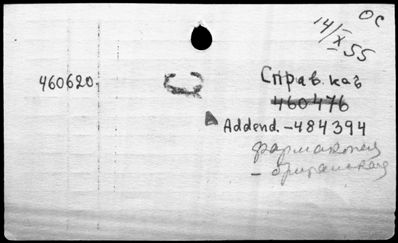 ОС
14/X 55
460620.
С
Справ. каб
460476
Addend. – 484394
фармакопея
– британская